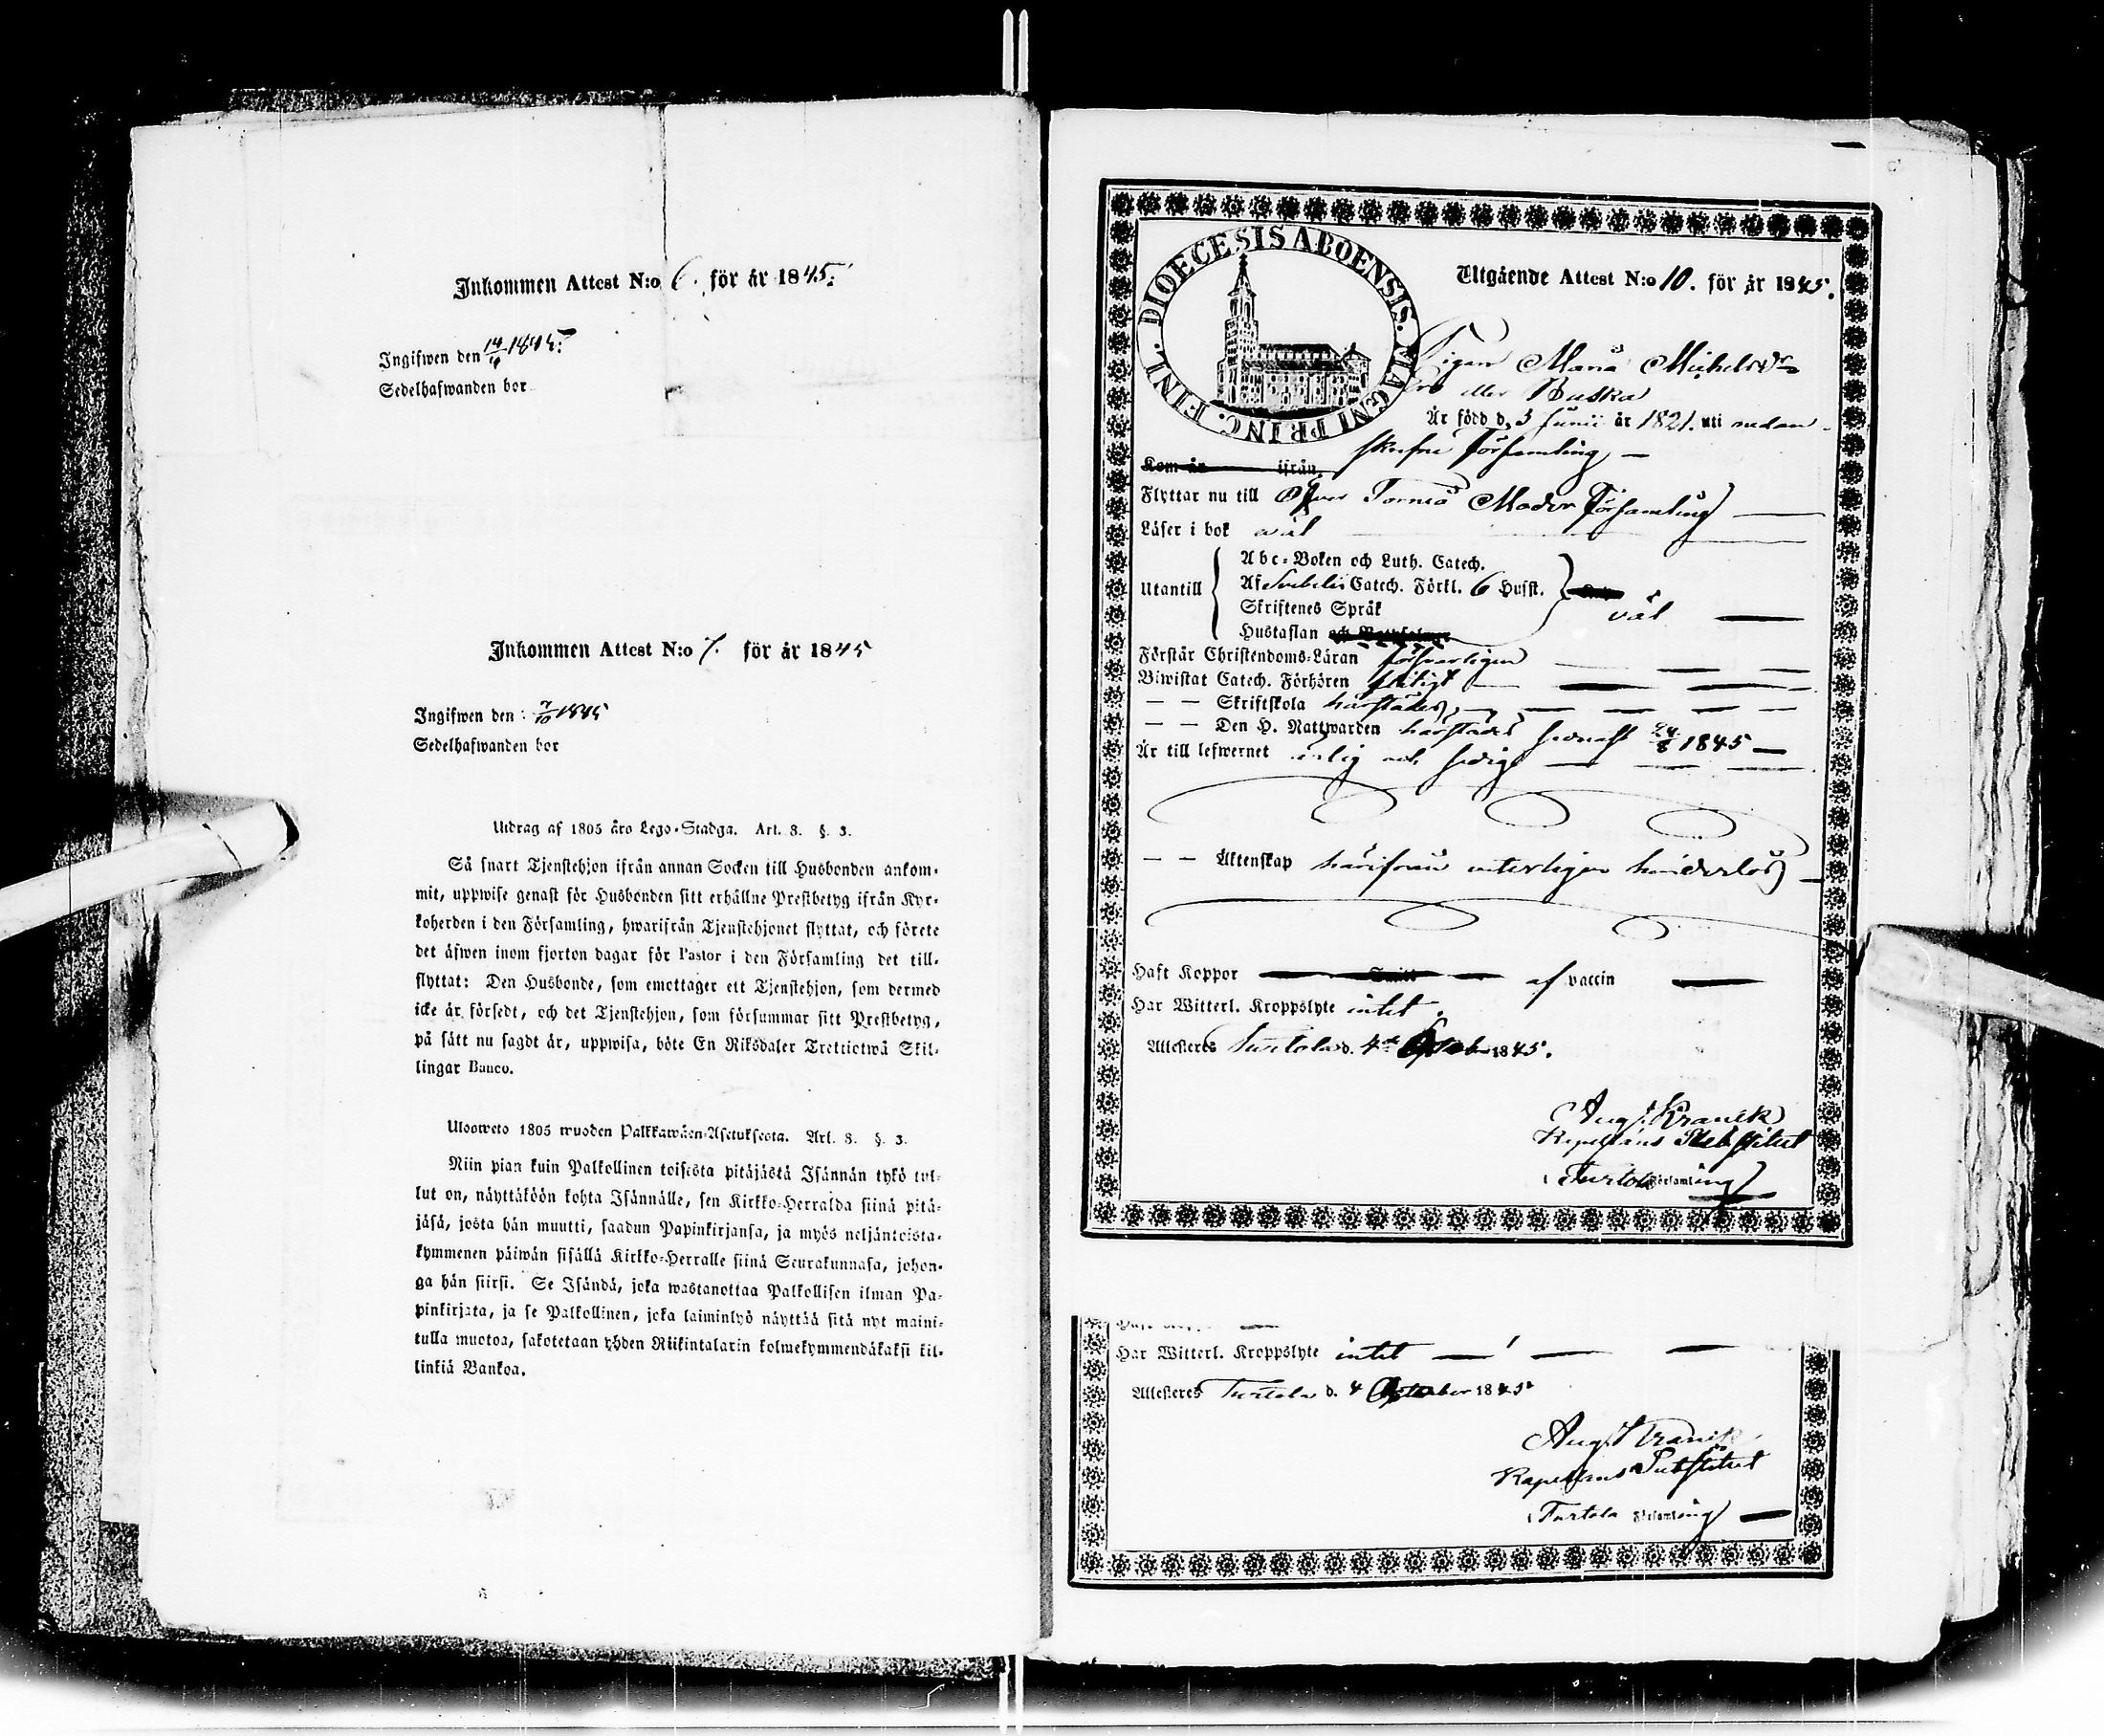 Inkommen Attest N:o 6. för år 1845.
Ingifwen den 14/4 1845.
Sedelhafwanden bor
Inkommen Attest N:o 7. för år 1845
Ingifwen den 7/10 1845
Sedelhafwanden bor
Utdrag af 1805 åro Lego-Stadga. Art. 8. §. 3.
Så snart Tjenstehjon ifrån annan Socken till Husbonden ankom-
mit, uppwise genast för Husbonden sitt erhållne Prestbetyg ifrån Kyr-
koherden i den Församling, hwarifrån Tjenstehjonet flyttat, och förete
det äfwen inom fjorton dagar för Pastor i den Församling det till-
flyttat: Den Husbonde, som emottager ett Tjenstehjon, som dermed
icke är försedt, och det Tjenstehjon, som försummar sitt Prestbetyg,
på sätt nu sagdt är, uppwisa, böte En Riksdaler Trettiotwå Skil-
lingar Banco.
Ulosweto 1805 wuoden Palkkawäen-Asetuksesta. Art. 8. §. 3.
Niin pian kuin Palkollinen toisesta pitäjästä Isännän tykö tul-
lut on, näyttäköön kohta Isännälle, sen Kirkko-Herralda siinä pitä-
jäsä, josta hän muutti, saadun Papinkirjansa, ja myös neljäntoista-
kymmenen päiwän sisällä Kirkko-Herralle siinä Seurakunnasa, johon-
ga hän siirsi. Se Isändä, joka wastanottaa Palkollisen ilman Pa-
pinkirjata, ja se Palkollinen, joka laiminlyö näyttää sitä nyt maini-
tulla muotoa, sakotetaan yhden Riikintalarin kolmekymmendäkaksi kil-
linkiä Bankoa.
DIOECESIS ABOENSIS. MAGNI PRINC. FINL.
Utgående Attest N:o 10. för år 1845.
Pigan Maria Michelsdr
eller Buska
Är född d. 3 Junii år 1821. uti nedan-
skrefne Församling
Kom år ifrån
Flyttar nu till Öfver Torneå Moder Församling
Läser i bok väl
Abc-Boken och Luth. Catech.
Utantill Af Svebelii Catech. Förkl. 6 Hufst. väl
Skriftenes Språk
Hustaflan
Förstår Christendoms-Läran försvarligen
Biwistat Catech. Förhören flitigt
— — Skriftskola härstädes
— — Den H. Nattwarden härstädes senast 24/8 1845
Är till lefwernet ärlig och sedig
— — Äktenskap härifrån veterligen hinderlös
Haft Koppor af vaccin
Har Witterl. Kroppslyte intet.
Attesteras Turtola d. 4de October 1845.
Aug. Kranck
Kapellans Substitut
i Turtola Församling
Har Witterl. Kroppslyte intet
Attesteras Turtola d. 4 October 1845
Aug. Kranck
Kapellans Substitut
i Turtola Församling